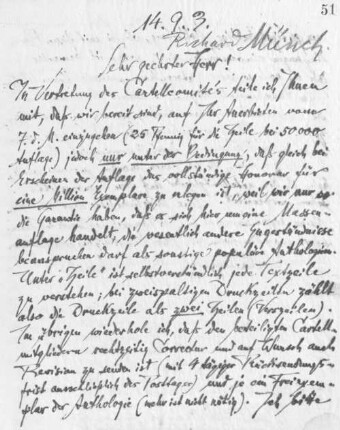 51
14.9.3.
Richard Münch.
Sehr geehrter Herr!
In Vertretung des Cartellcomités teile ich Ihnen
mit, daß wir bereit sind, auf Ihr Anerbieten vom
7. d. M. einzugehen (25 Pfennig für die Zeile bei 50000
Auflage) jedoch nur unter der Bedingung, daß gleich bei
Erscheinen der Auflage das vollständige Honorar für
eine Million Exemplare zu erlegen ist, weil wir nur so
die Garantie haben, daß es sich hier um eine Massen-
auflage handelt, die wesentlich andere Zugeständnisse
beanspruchen darf als sonstige populäre Anthologien.
Unter "Zeile" ist selbstverständlich jede Textzeile
zu verstehen; bei zweispaltigen Druckzeilen zählt
also die Druckzeile als zwei Zeilen (Verszeilen).
Im übrigen wiederhole ich, daß den beteiligten Cartell-
mitgliedern rechtzeitig Correctur und auf Wunsch auch
Revision zu senden ist (mit 4 tägiger Rücksendungs-
frist ausschließlich der Posttage) und je ein Freiexem-
plar der Anthologie (mehr ist nicht nötig). Ich bitte